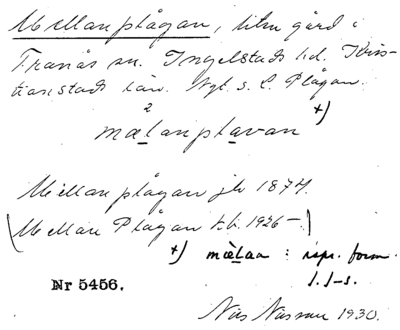 Mellanplågan, liten gård i
Tranås sn. Ingelstads hd. Kris-
tianstads län. Nyl. s. l. Plågan.
2 +)
mælanplavan
Mellanplågan jb 1874.
(Mellan Plågan t.b. 1926 –.)
+) mælaa : repr. form
Nr 5456.
1930.